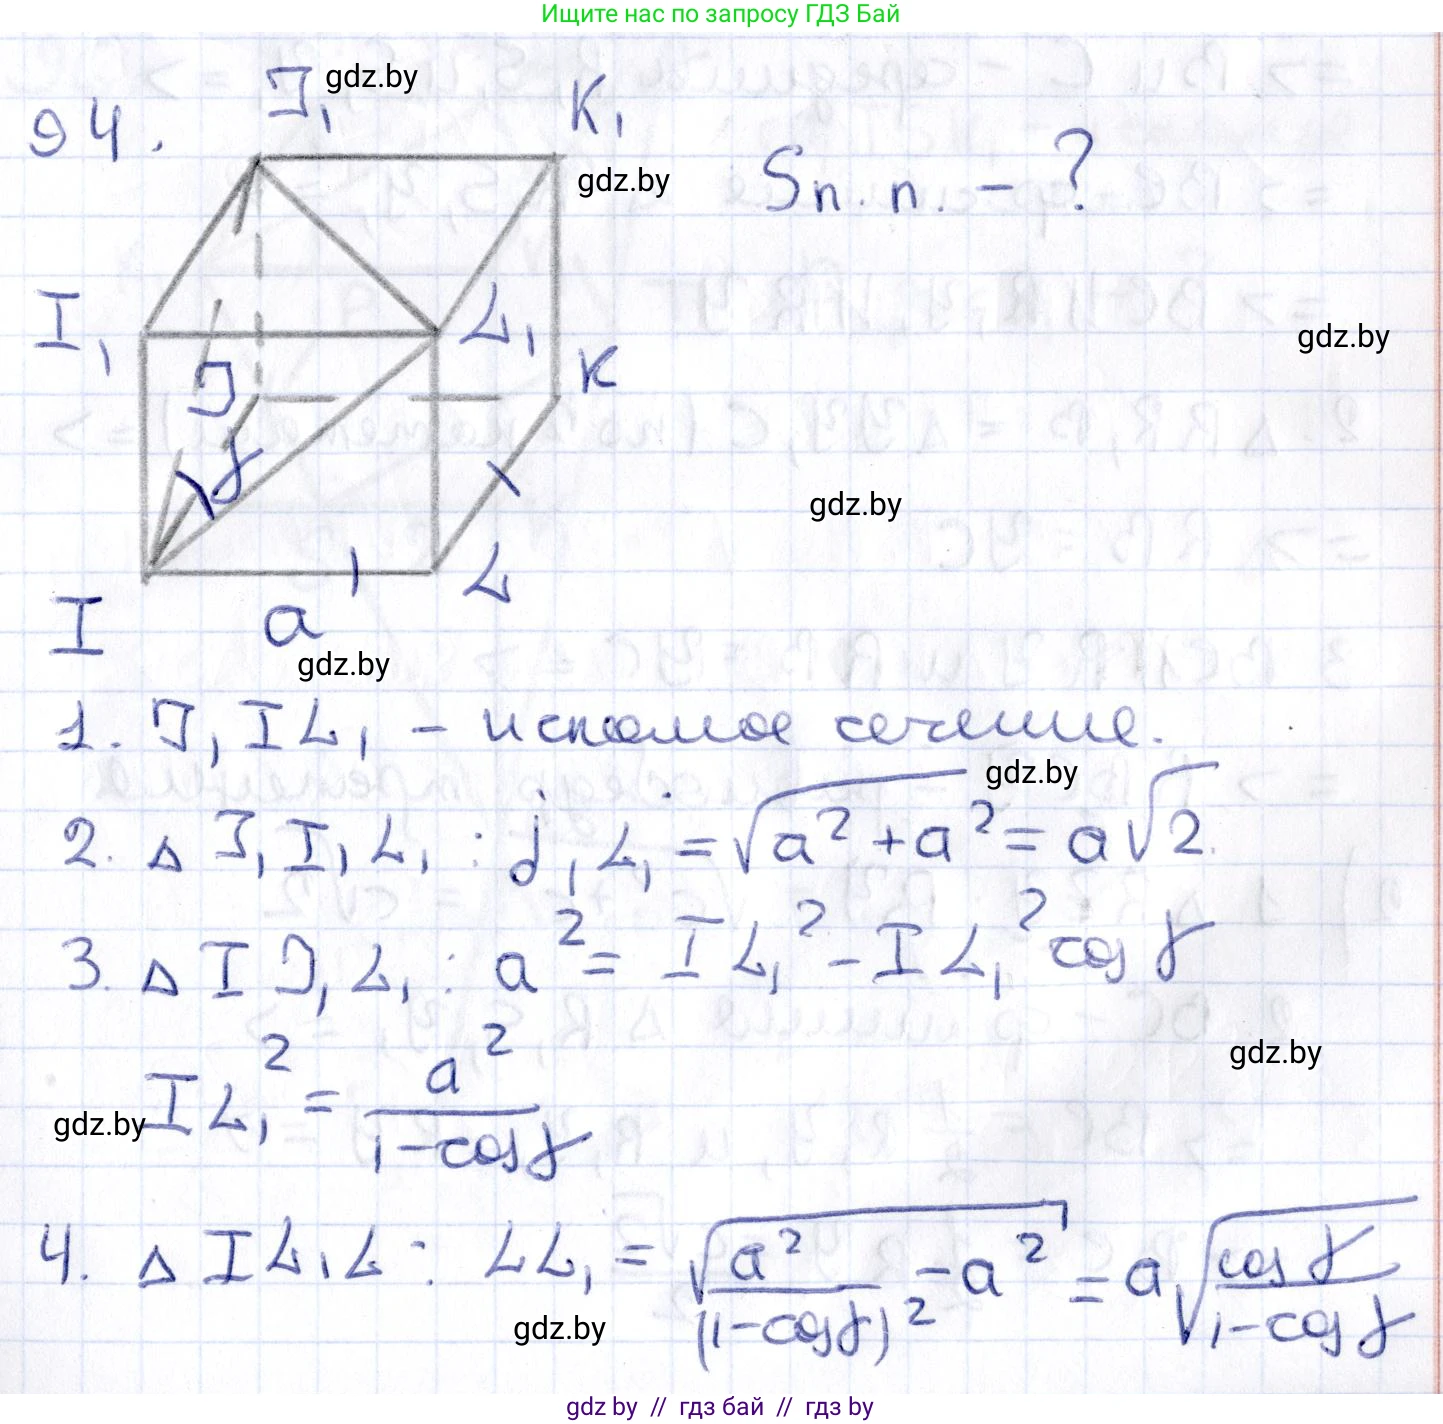 Ищите нас по запросу ГДЗ Бай
94.
J₁
gdz.by
K₁
gdz.by
Sп.п. - ?
I₁
L₁
gdz.by
J
K
γ
gdz.by
I
a
L
gdz.by
1. J₁IL₁ - искомое сечение.
gdz.by
2. △ J₁I₁L₁ : j₁L₁ = √(a² + a²) = a√2.
3. △ IJ₁L₁ : a² = IL₁² - IL₁² cos γ
gdz.by
IL₁² = a² / (1 - cos γ)
gdz.by
4. △ IL₁L : LL₁ = √(a² / (1 - cos γ)² - a²) = a√(cos γ / (1 - cos γ))
gdz.by
gdz by // гдз бай // гдз by